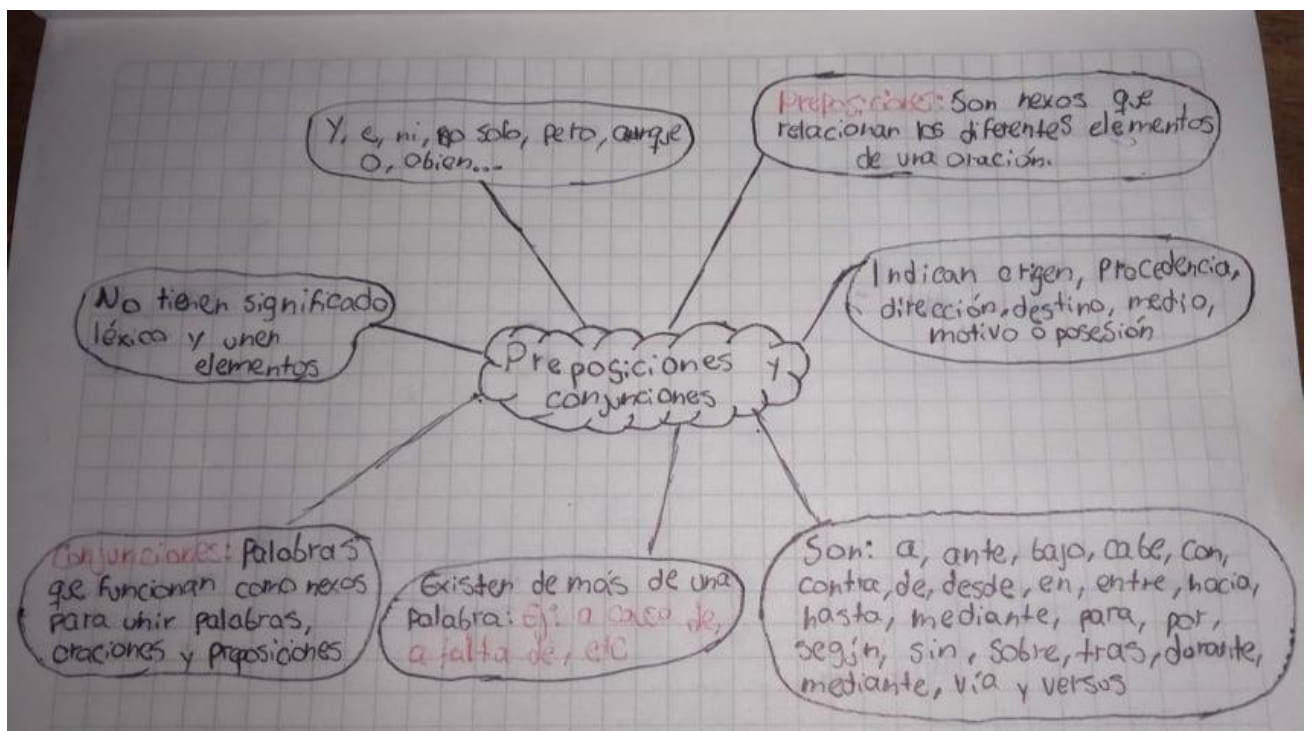 Y, e, ni, no solo, pero, aunque
O, obien...
Preposiciones: Son nexos que
relacionan los diferentes elementos
de una oración.
No tienen significado
léxico y unen
elementos
Indican origen, procedencia,
dirección, destino, medio,
motivo ó posesión
Preposiciones y
conjunciones
Conjunciones: Palabras
que funcionan como nexos
para unir palabras,
oraciones y proposiciones
Existen de más de una
palabra: Ej: a causa de,
a falta de, etc
Son: a, ante, bajo, cabe, con,
contra, de, desde, en, entre, hacia,
hasta, mediante, para, por,
según, sin, sobre, tras, durante,
mediante, vía y versus